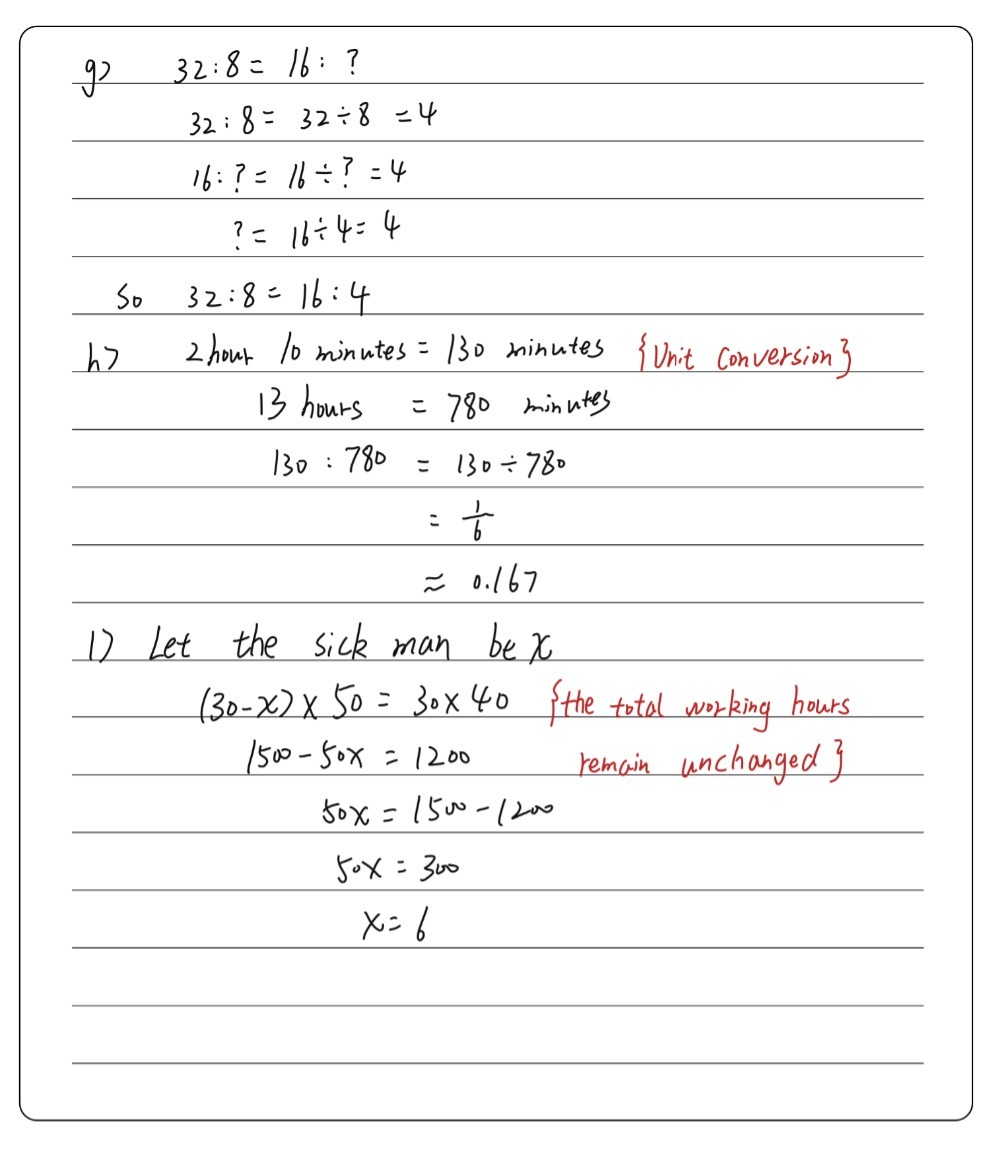 g) 32:8 = 16: ?
32:8 = 32÷8 = 4
16:? = 16÷? = 4
? = 16÷4 = 4
So 32:8 = 16:4
h) 2 hour 10 minutes = 130 minutes {Unit Conversion}
13 hours = 780 minutes
130 : 780 = 130÷780
= 1/6
≈ 0.167
1) Let the sick man be x
(30-x)×50 = 30×40 {the total working hours
1500-50x = 1200 remain unchanged}
50x = 1500-1200
50x = 300
x = 6